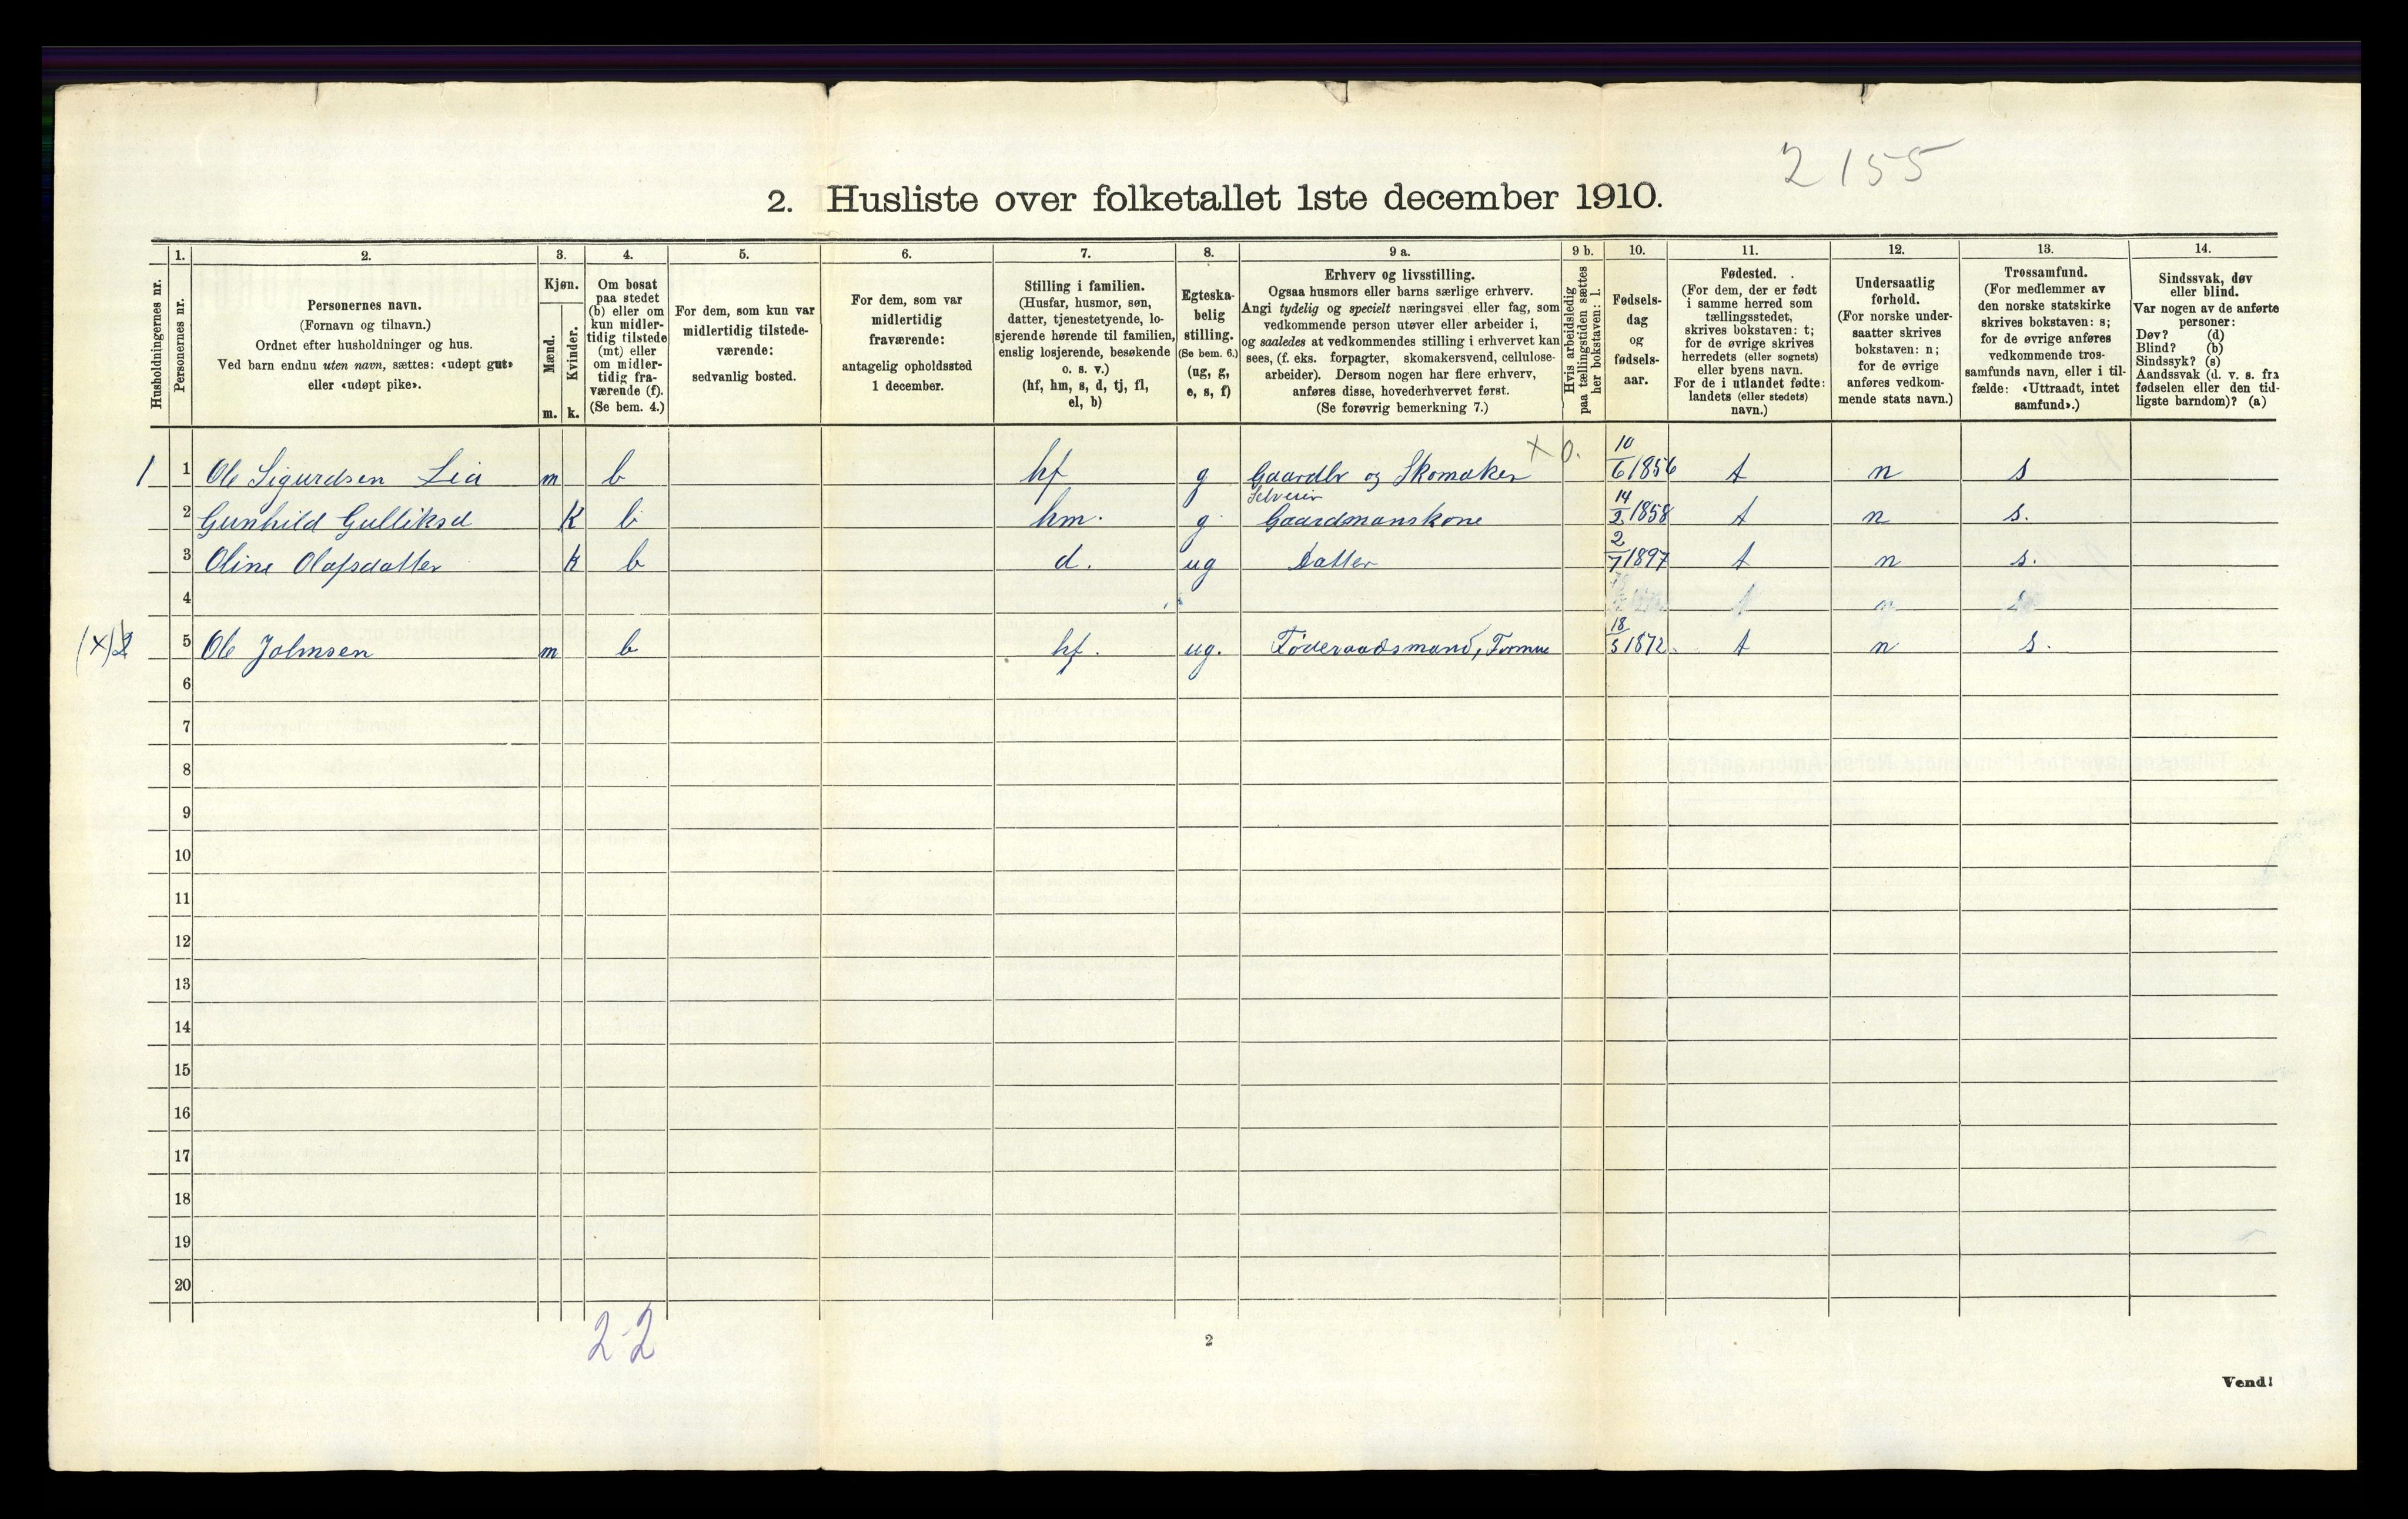 2155
2. Husliste over folketallet 1ste december 1910.
Husholdningernes nr.
1. Personernes nr.
2. Personernes navn.
(Fornavn og tilnavn.)
Ordnet efter husholdninger og hus.
Ved barn endnu uten navn, sættes: «udøpt gut»
eller «udøpt pike».
3. Kjøn.
Mænd. m.
Kvinder. k.
4. Om bosat
paa stedet
(b) eller om
kun midler-
tidig tilstede
(mt) eller
om midler-
tidig fra-
værende (f).
(Se bem. 4.)
5. For dem, som kun var
midlertidig tilstede-
værende:
sedvanlig bosted.
6. For dem, som var
midlertidig
fraværende:
antagelig opholdssted
1 december.
7. Stilling i familien.
(Husfar, husmor, søn,
datter, tjenestetyende, lo-
sjerende hørende til familien,
enslig losjerende, besøkende
o. s. v.)
(hf, hm, s, d, tj, fl,
el, b)
8. Egteska-
belig
stilling.
(Se bem. 6.)
(ug, g,
e, s, f)
9 a. Erhverv og livsstilling.
Ogsaa husmors eller barns særlige erhverv.
Angi tydelig og specielt næringsvei eller fag, som
vedkommende person utøver eller arbeider i,
og saaledes at vedkommendes stilling i erhvervet kan
sees, (f. eks. forpagter, skomakersvend, cellulose-
arbeider). Dersom nogen har flere erhverv,
anføres disse, hovederhvervet først.
(Se forøvrig bemerkning 7.)
9 b. Hvis arbeidsledig
paa tællingstiden sættes
her bokstaven: l.
10. Fødsels-
dag
og
fødsels-
aar.
11. Fødested.
(For dem, der er født
i samme herred som
tællingsstedet,
skrives bokstaven: t;
for de øvrige skrives
herredets (eller sognets)
eller byens navn.
For de i utlandet fødte:
landets (eller stedets)
navn.)
12. Undersaatlig
forhold.
(For norske under-
saatter skrives
bokstaven: n;
for de øvrige
anføres vedkom-
mende stats navn.)
13. Trossamfund.
(For medlemmer av
den norske statskirke
skrives bokstaven: s;
for de øvrige anføres
vedkommende tros-
samfunds navn, eller i til-
fælde: «Uttraadt, intet
samfund».)
14. Sindssvak, døv
eller blind.
Var nogen av de anførte
personer:
Døv? (d)
Blind? (b)
Sindssyk? (s)
Aandssvak (d. v. s. fra
fødselen eller den tid-
ligste barndom)? (a)
1 1 Ole Sigurdsen Lia m b hf g Gaardbr og Skomaker x 0. 10/6 1856 t n s
Selveier
2 Gunhild Gulliksd K b hm. g Gaardmanskone 14/2 1858 t n s.
3 Oline Olafsdatter k b d. ug Datter 2/7 1897 t n s.
4
(x) 2 5 Ole Johnsen m b hf. ug. Føderaadsmand, Formue 18/3 1872. t n s.
6
7
8
9
10
11
12
13
14
15
16
17
18
19
20
2 2
2
Vend!